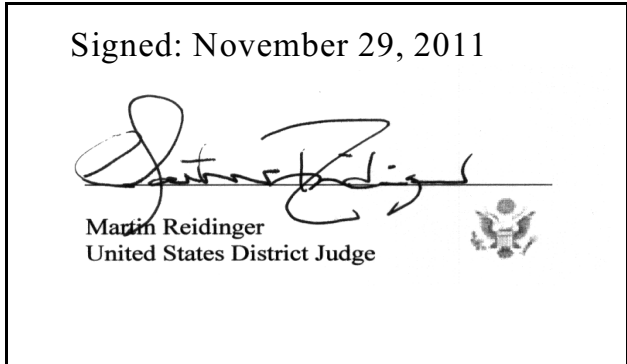 Signed: November 29, 2011
Martin Reidinger
United States District Judge